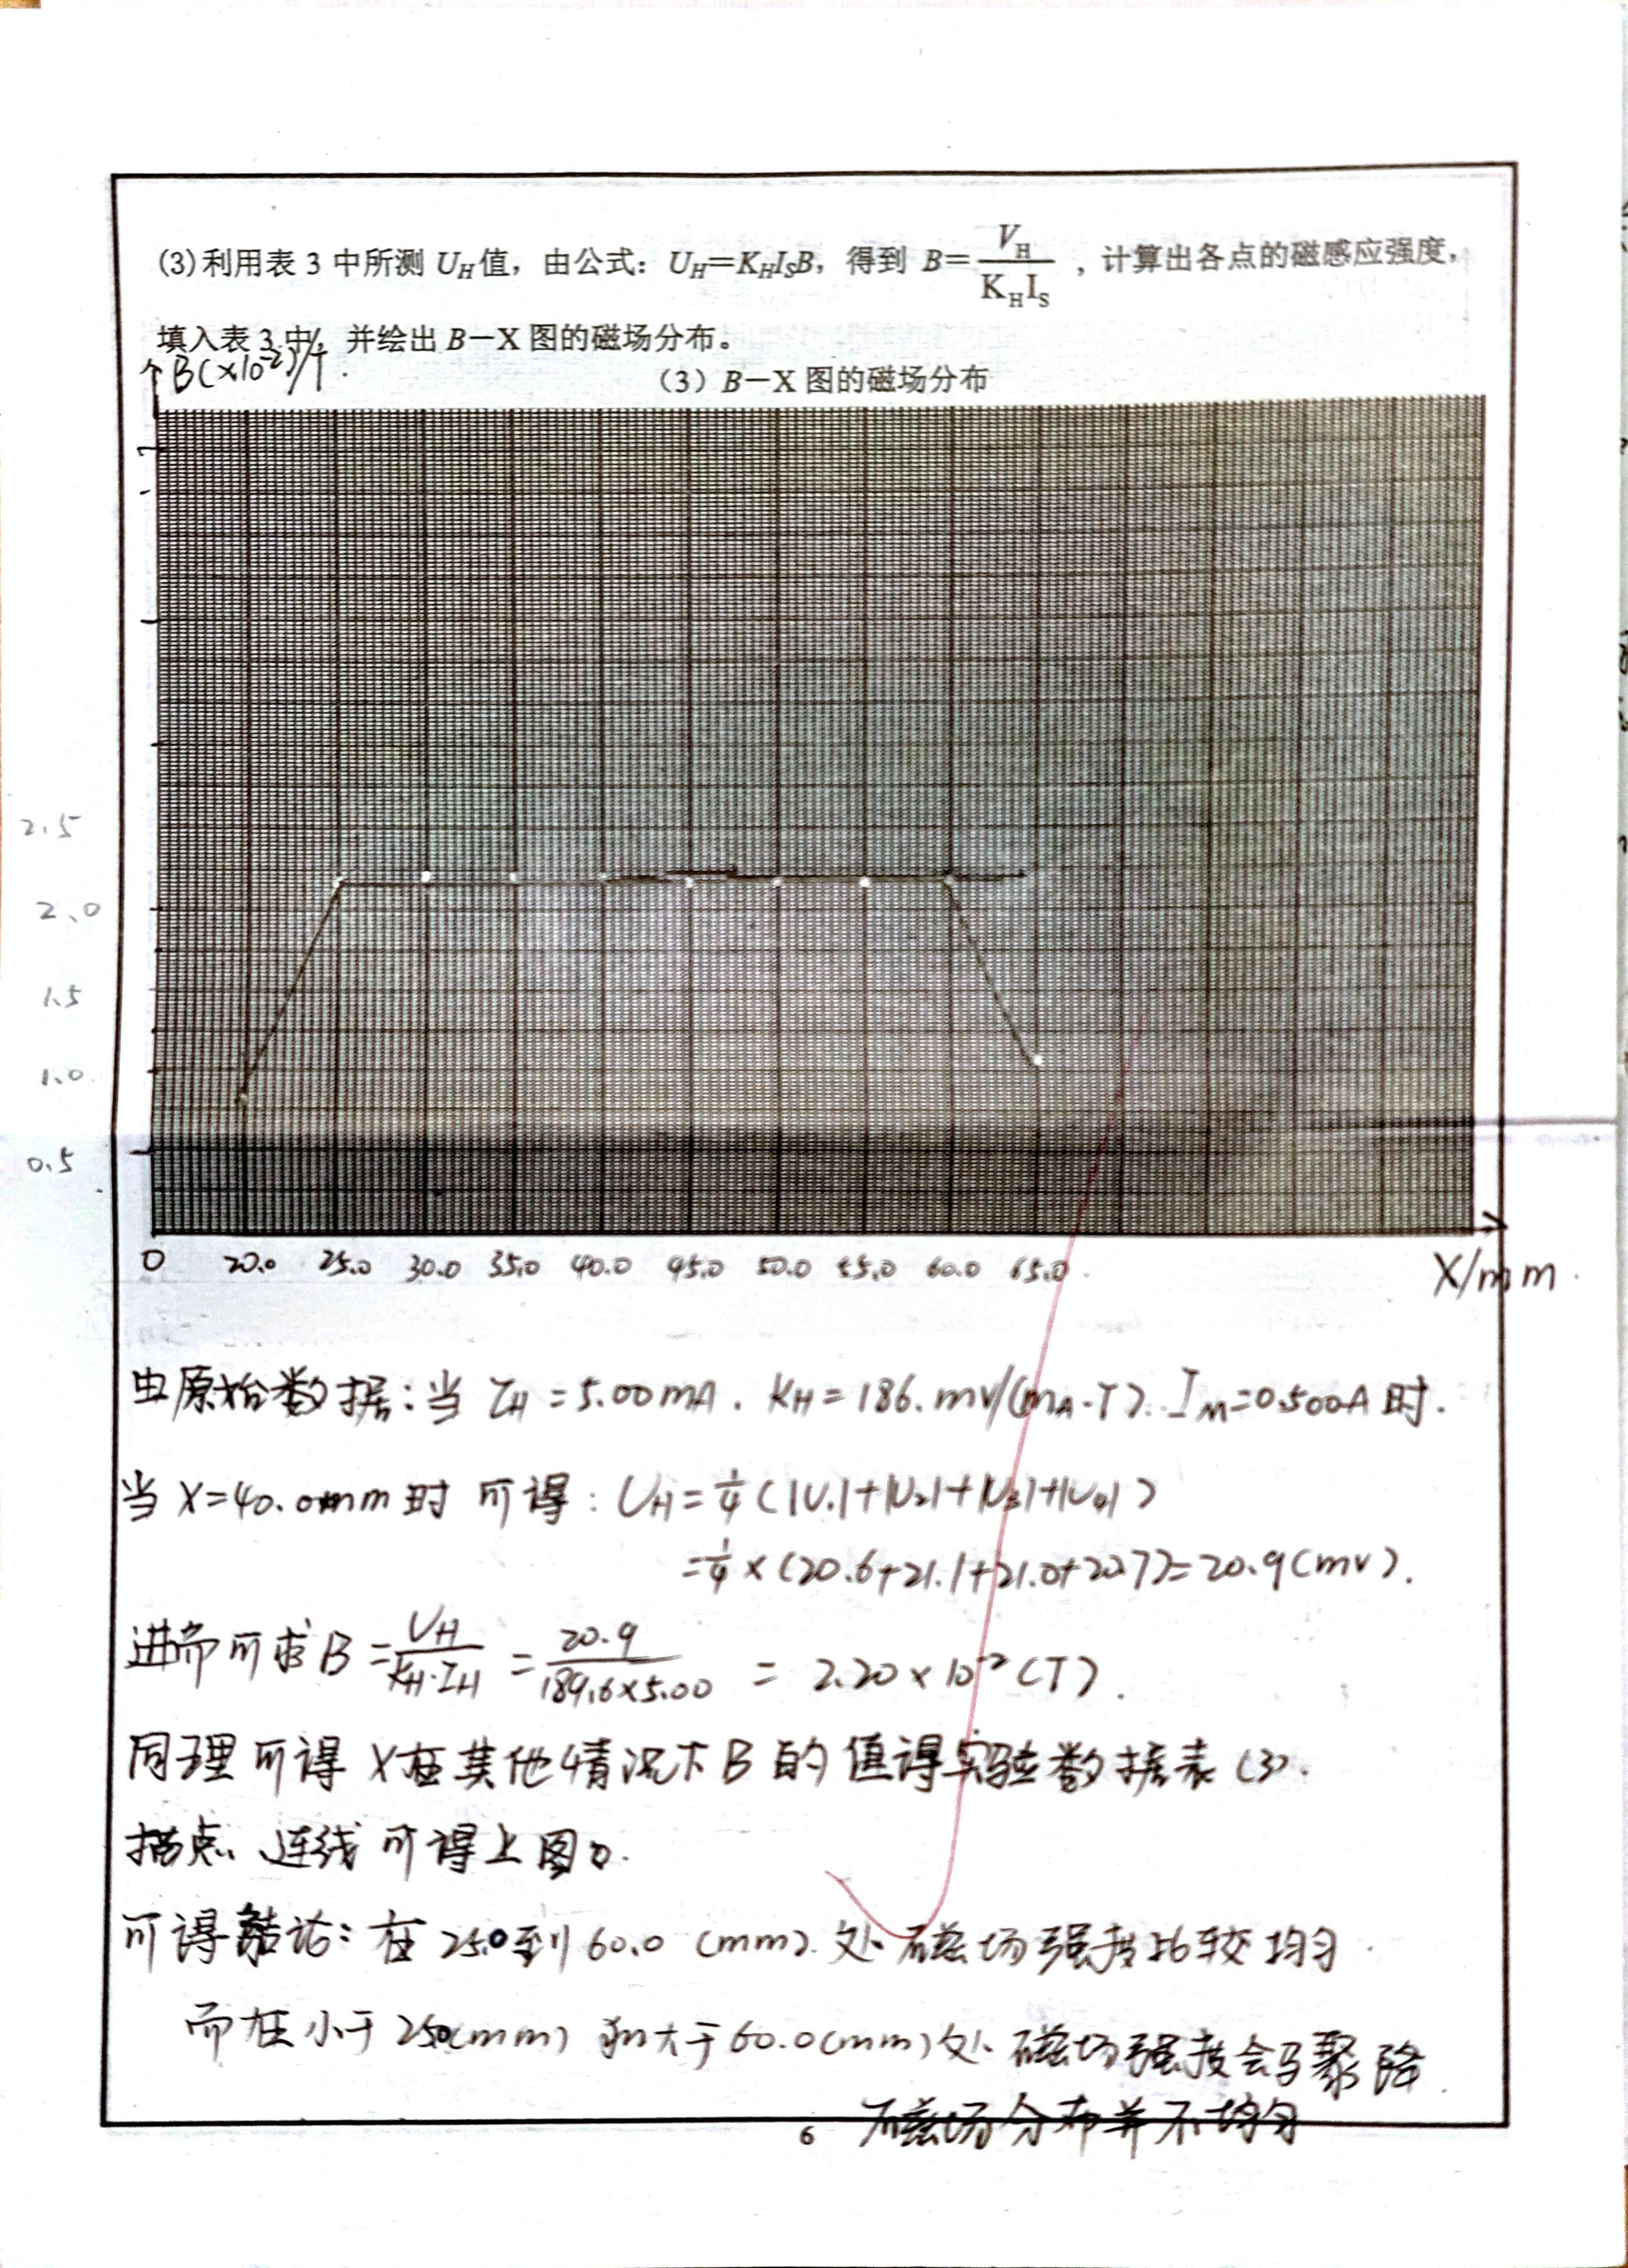 (3)利用表 3 中所测 U_H 值，由公式：U_H=K_HI_SB，得到 B=V_H/(K_HI_S)，计算出各点的磁感应强度，
填入表 3 中，并绘出 B－X 图的磁场分布。
B(×10⁻²)/T
（3）B－X 图的磁场分布
2.5
2.0
1.5
1.0
0.5
0 20.0 25.0 30.0 35.0 40.0 45.0 50.0 55.0 60.0 65.0
X/mm
由原始数据：当 I_H=5.00mA. K_H=186. mv/(mA·T). I_M=0.500A 时.
当 X=40.0mm 时 可得：U_H=1/4(|U₁|+|U₂|+|U₃|+|U₄|)
=1/4×(20.6+21.1+21.0+20.7)=20.9(mv).
进而可求 B=U_H/(K_H·I_H)=20.9/(189.6×5.00)=2.20×10⁻²(T).
同理可得 X在其他情况下 B 的值得实验数据表(3).
描点、连线可得上图。
可得结论：在 25.0到60.0 (mm) 处磁场强度比较均匀
而在小于 25.0(mm) 和大于 60.0(mm)处磁场强度会马聚降
磁场分布并不均匀
6